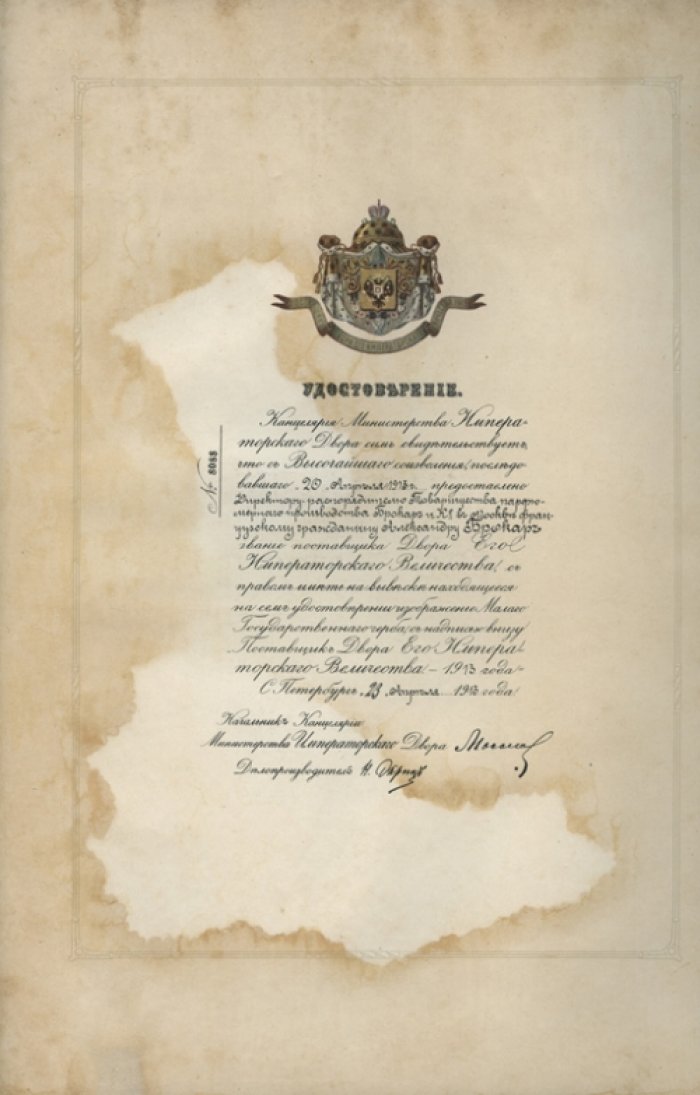 УДОСТОВѢРЕНІЕ.
Канцелярія Министерства Импера-
торскаго Двора симъ свидѣтельствуетъ,
что съ Высочайшаго соизволенія, послѣдо-
вавшаго 20 Апрѣля 1913 г. предоставлено
Директору-распорядителю Товарищества парфю-
мернаго производства Брокаръ и Кº въ Москвѣ фран-
цузскому гражданину Александру Брокаръ
званіе поставщика Двора Его
Императорскаго Величества, съ
правомъ имѣть на вывѣскѣ находящееся
на семъ удостовѣреніи изображеніе Малаго
Государственнаго герба, съ надписью внизу
Поставщикъ Двора Его Импера-
торскаго Величества – 1913 года
С. Петербургъ, 23 Апрѣля 1913 года
№ 8088
Начальникъ Канцеляріи
Министерства Императорскаго Двора
Дѣлопроизводитель